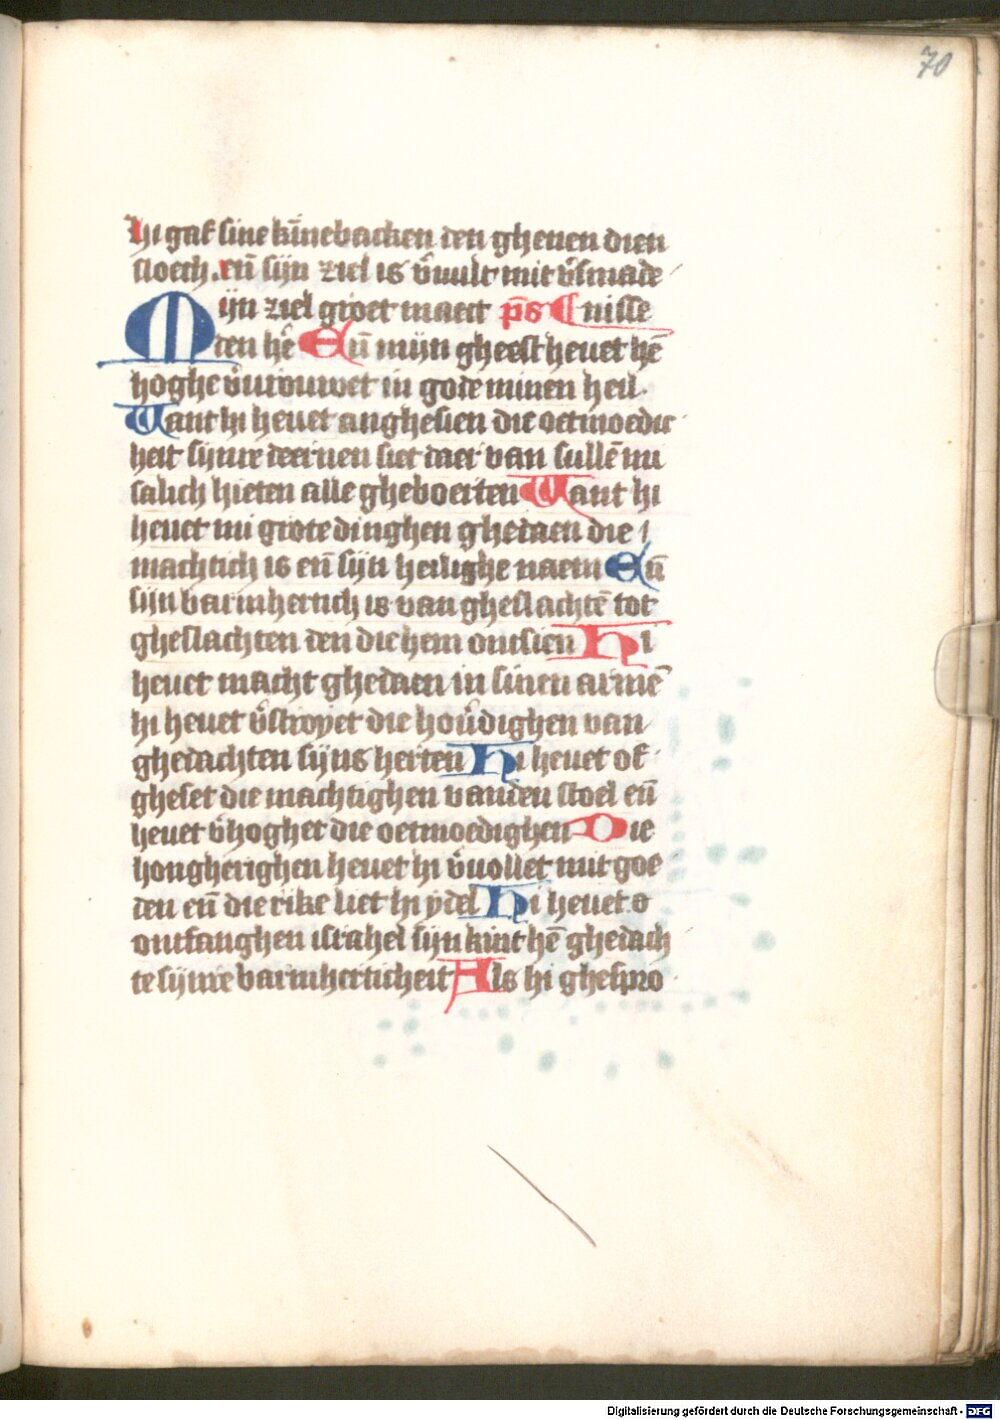 70
hi gaf sine kīnebacken den ghenen dien
sloech. eñ sijn ziel is v̄vult mit v̄smade
Mijn ziel groet maect p̄s ¶ nisse
den hē Eñ mijn gheest heuet hē
hoghe v̄vrouwet in gode minen heil.
Want hi heuet anghesien die oetmoedic
heit sijnre deernen siet daer van sullē mi
salich hieten alle gheboerten Want hi
heuet mi grote dinghen ghedaen die
machtich is eñ sijn heilighe naem Eñ
sijn barmhertich is van gheslachtē tot
gheslachten den die hem ontsien Hi
heuet macht ghedaen in sinen armē
hi heuet v̄stroyet die hov̄dighen van
ghedachten sijns herten Hi heuet of
gheset die machtighen vanden stoel eñ
heuet v̄hoghet die oetmoedighen Die
hongherighen heuet hi v̄vollet mit goe
den eñ die rike liet hi ydel Hi heuet o
ontfanghen israhel sijn kint hē ghedach
te sijnre barmherticheit Als hi ghespro
Digitalisierung gefördert durch die Deutsche Forschungsgemeinschaft - DFG